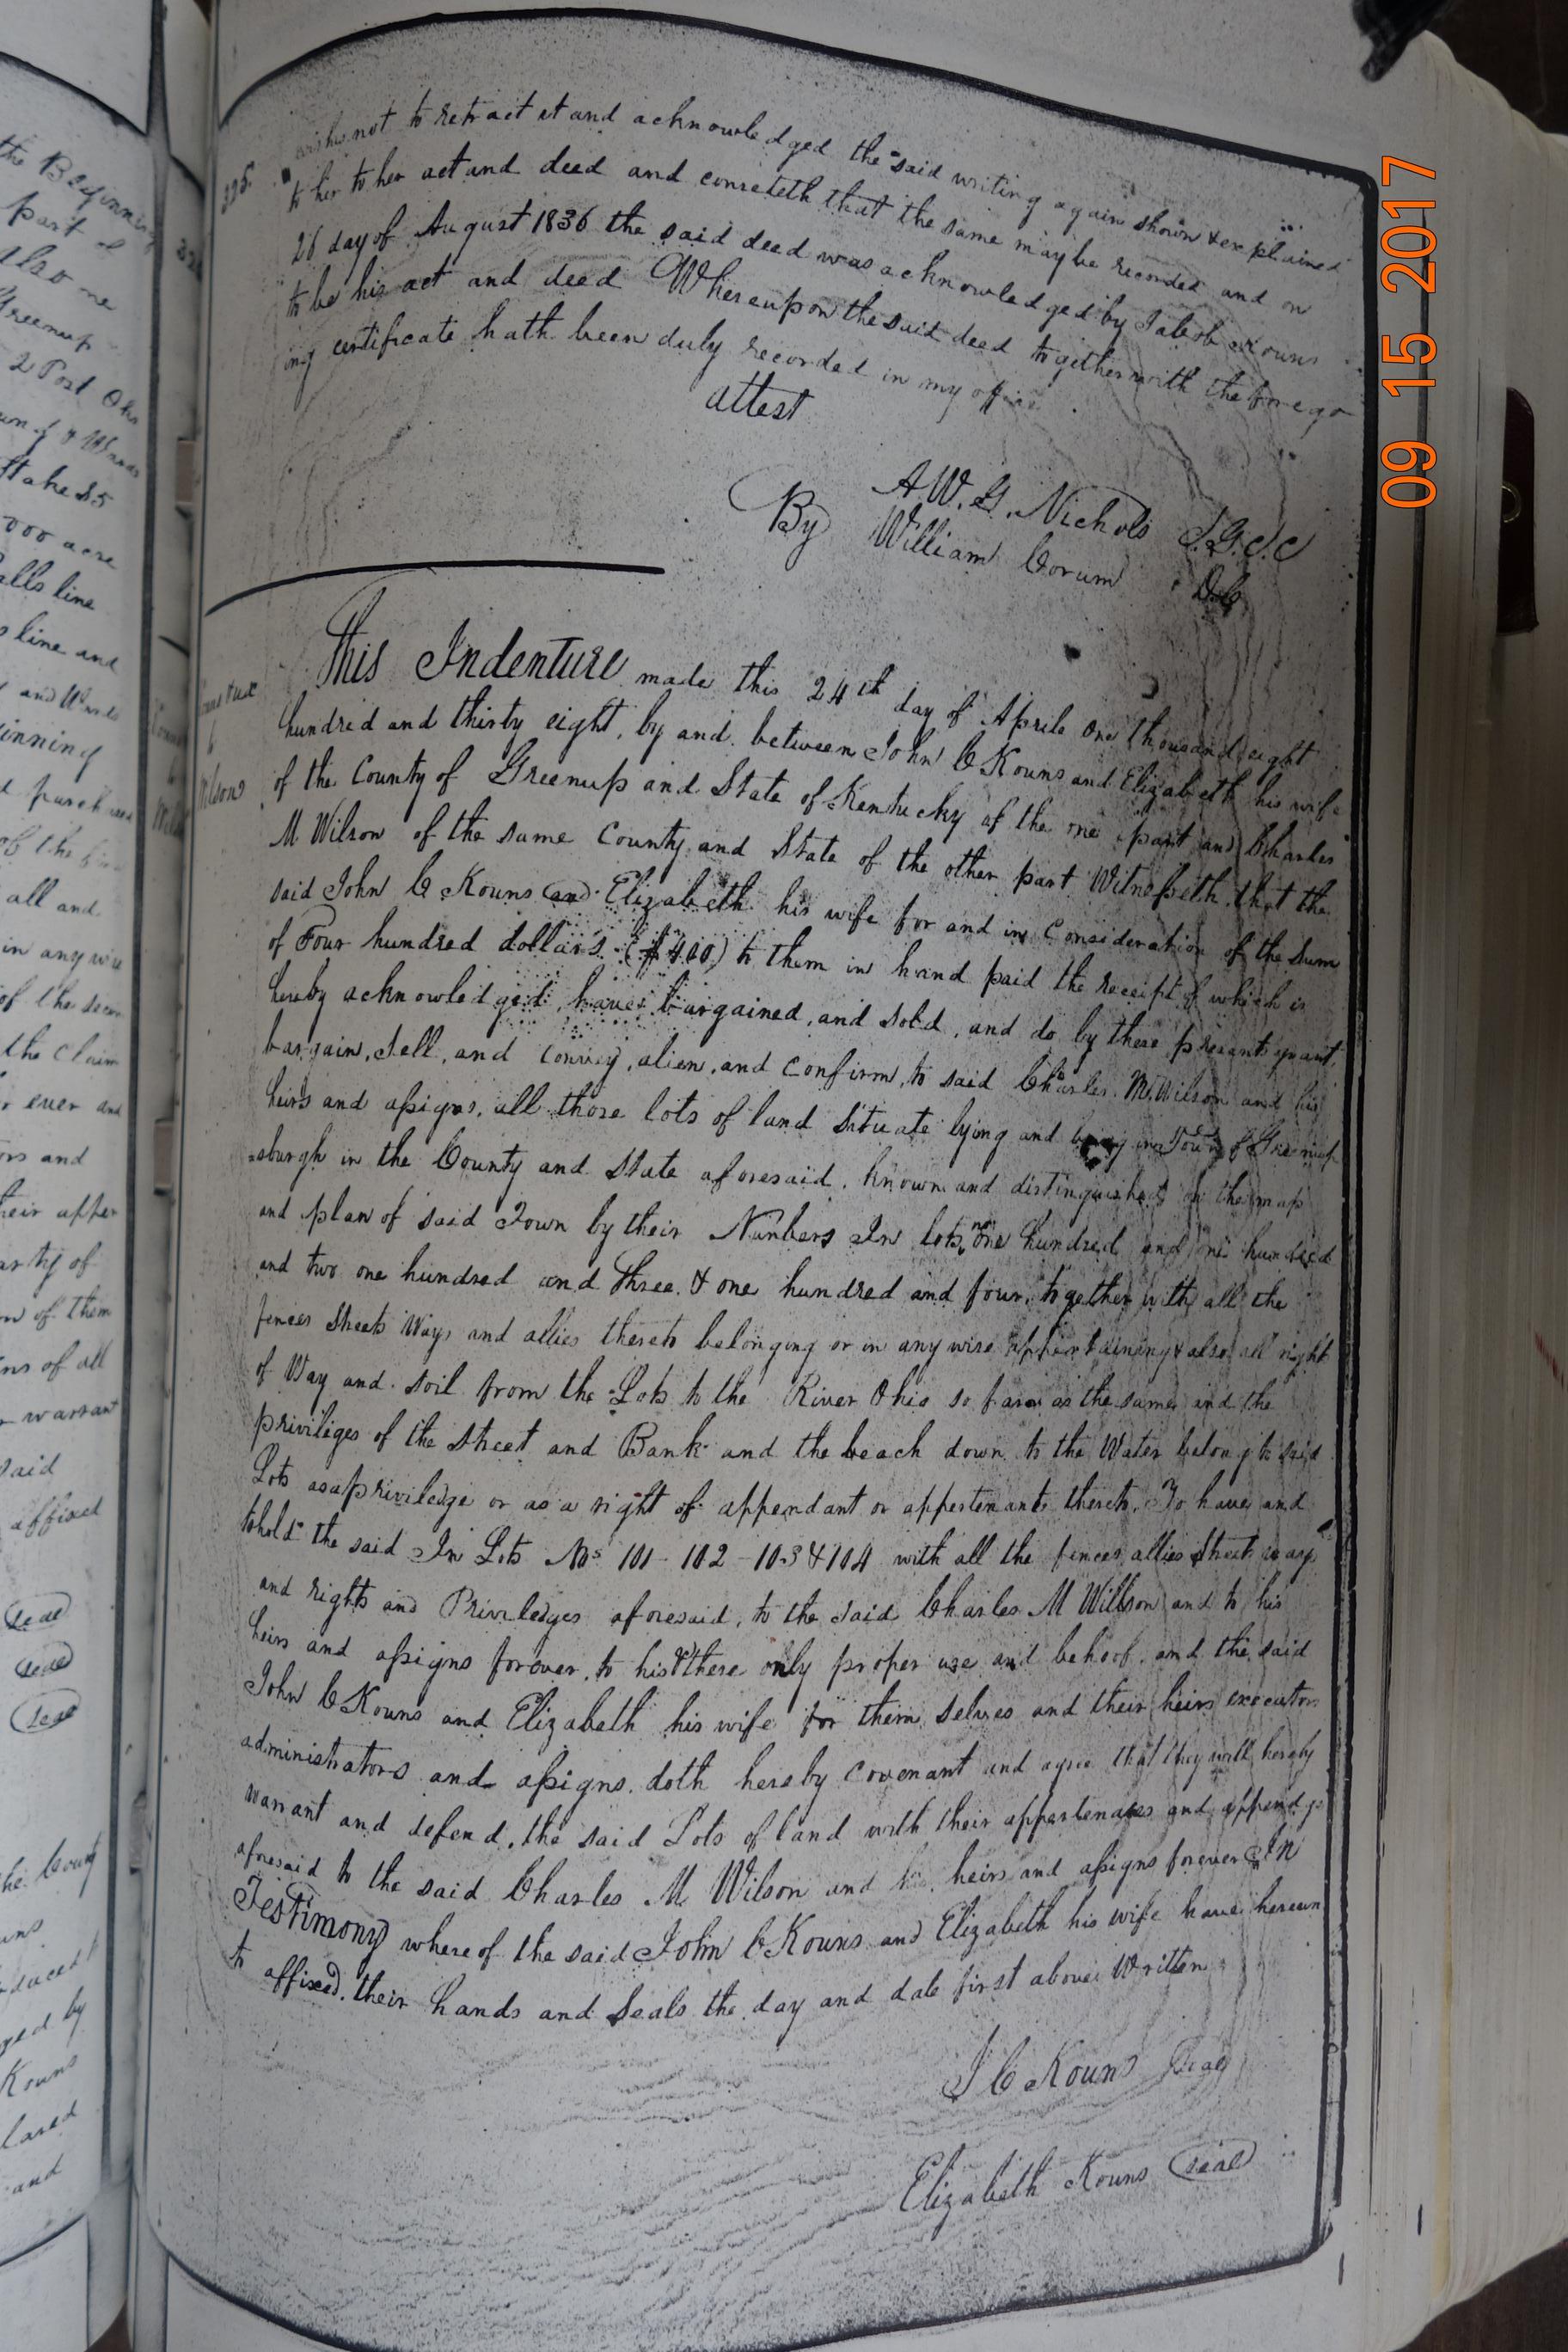 325
wishes not to retract it and acknowledged the said writing again shown & explained
to her to her act and deed and conseteth that the same may be recorded and on
26 day of August 1836 the said deed was acknowledged by Jacob Kouns
to be his act and deed Whereupon the said deed together with the forego
ing certificate hath been duly recorded in my office
attest
A. W. G. Nichols
By William Corum DC
This Indenture made this 24th day of Aprile One thousand eight
hundrid and thirty eight, by and between John C Kouns and Elizabeth his wife
of the County of Greenup and State of Kentucky of the one part and Charles
M Wilson of the same County and State of the other part Witnesseth, that the
said John C Kouns and Elizabeth his wife for and in Consideration of the Sum
of Four hundred dollars ($400) to them in hand paid the receipt of which is
hereby acknowledged, have bargained, and sold, and do by these presents grant,
bargain, Sell, and convey, alien, and Confirm, to said Charles. M. Wilson and his
heirs and assigns, all those lots of land Situate lying and being in Town of Greenup
sburgh in the County and State aforesaid, known and distinguished on the map
and plan of said Town by their Numbers In lots, one hundred and one hundred
and two one hundred and three & one hundred and four, together with all the
fences Streets Ways and allies thereto belonging or in any wise appertaining & also all right
of Way and soil from the Lots to the River Ohio so far as the same and the
privileges of the Street and Bank and the beach down to the Water belong to said
Lots as a priviledge or as a right of appendant or appertenants thereto, To have and
to hold the said In Lots Nos 101 - 102 - 103 & 104 with all the fences allies Streets ways
and rights and Priviledges aforesaid, to the said Charles M Willson and to his
heirs and assigns forever, to his & there only proper use and behoof, and the said
John C Kouns and Elizabeth his wife for them Selves and their heirs executors
administrators and assigns, doth hereby covenant and agree that they will hereby
warrant and defend, the said Lots of land with their appertenases and
aforesaid to the said Charles M Wilson and his heirs and assigns forever In
Testimony whereof the said John C Kouns and Elizabeth his wife have hereun
to affixed their hands and Seals the day and date first above Written
J C Kouns Seal
Elizabeth Kouns Seal
09 15 2017